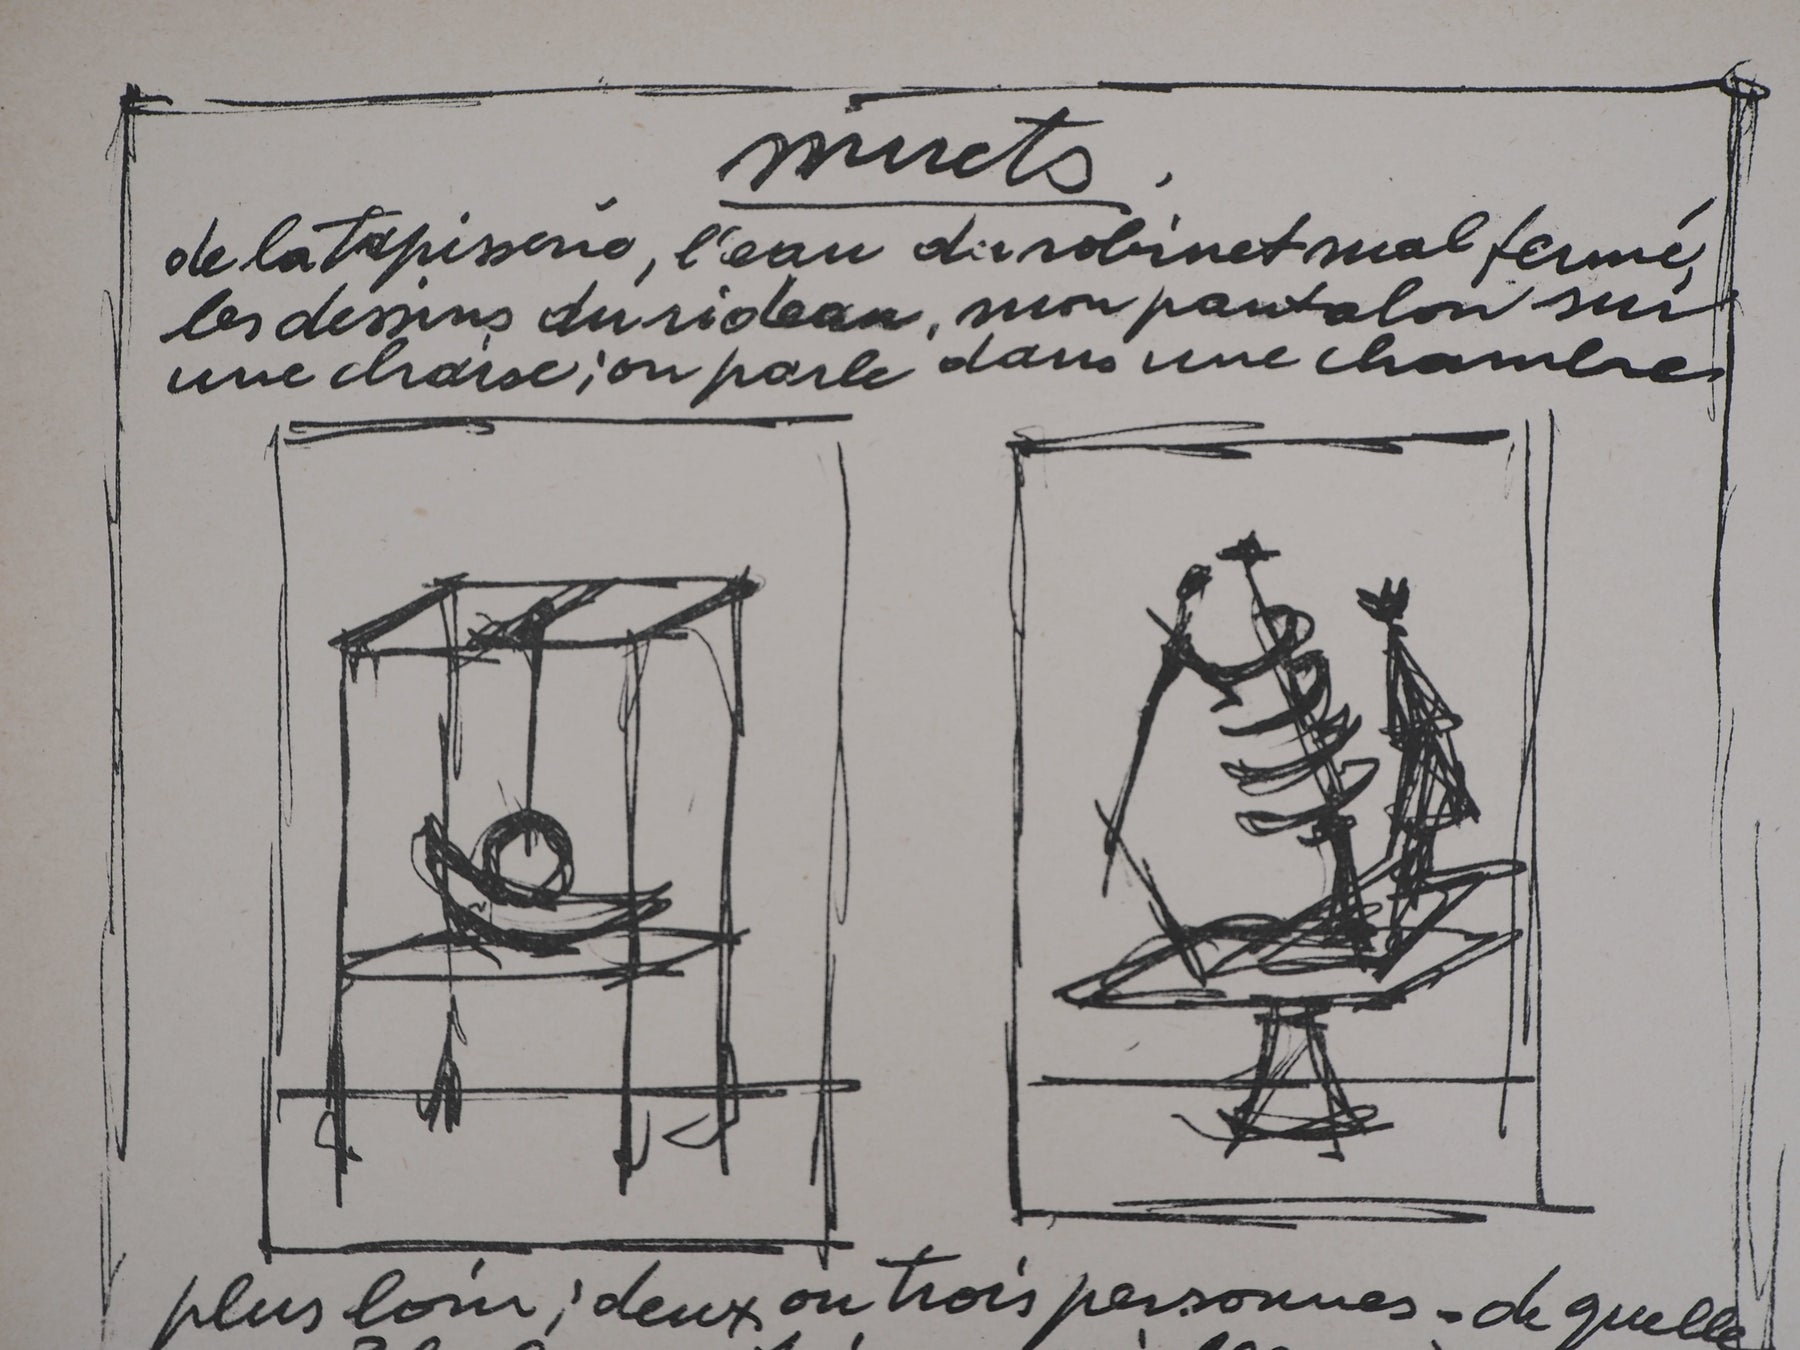 muets.
de la tapisserie, l'eau du robinet mal fermé,
les dessins du rideau, mon pantalon sur
une chaise ; on parle dans une chambre
plus loin ; deux ou trois personnes - de quelle